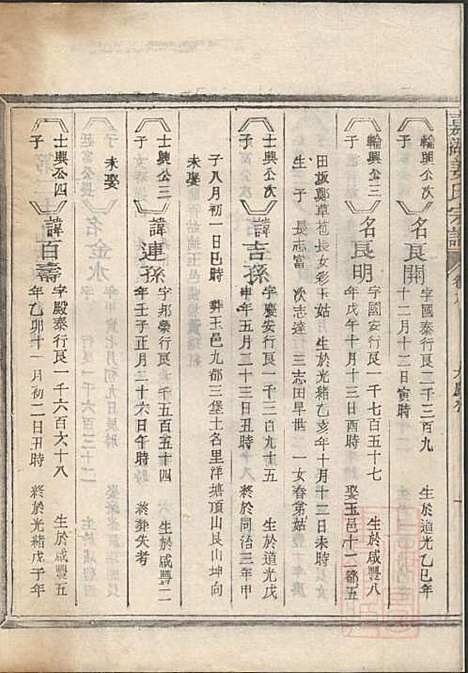 嘉湖姜氏宗譜
輪興公次子
名良開
字國泰行良一千三百九
生於道光乙巳年
十二月十二日寅時
輪興公三子
名良明
字國安行良一千七百五十七
生於咸豐八
年戊午十月十三日酉時
娶玉邑十二都五
田畈鄭草苞長女彩玉姑
生於光緒乙亥年十月十三日未時
生一子
長志富
次志達
三志田早世
一女春弟姑
士興公次子
諱吉孫
字慶安行良一千二百九十五
生於道光戊
申年五月二十三日丑時
終於同治三年甲
子八月初一日巳時
葬玉邑九都三堡土名里洋塘頂山艮山坤向
未娶
士興公三子
諱連孫
字邦榮行良一千五百五十四
生於咸豐二
年壬子正月三十六日午時
終葬失考
未娶
士興公四子
諱百壽
字殿泰行良一千六百六十八
生於咸豐五
年乙卯十一月初二日丑時
終於光緒戊子年